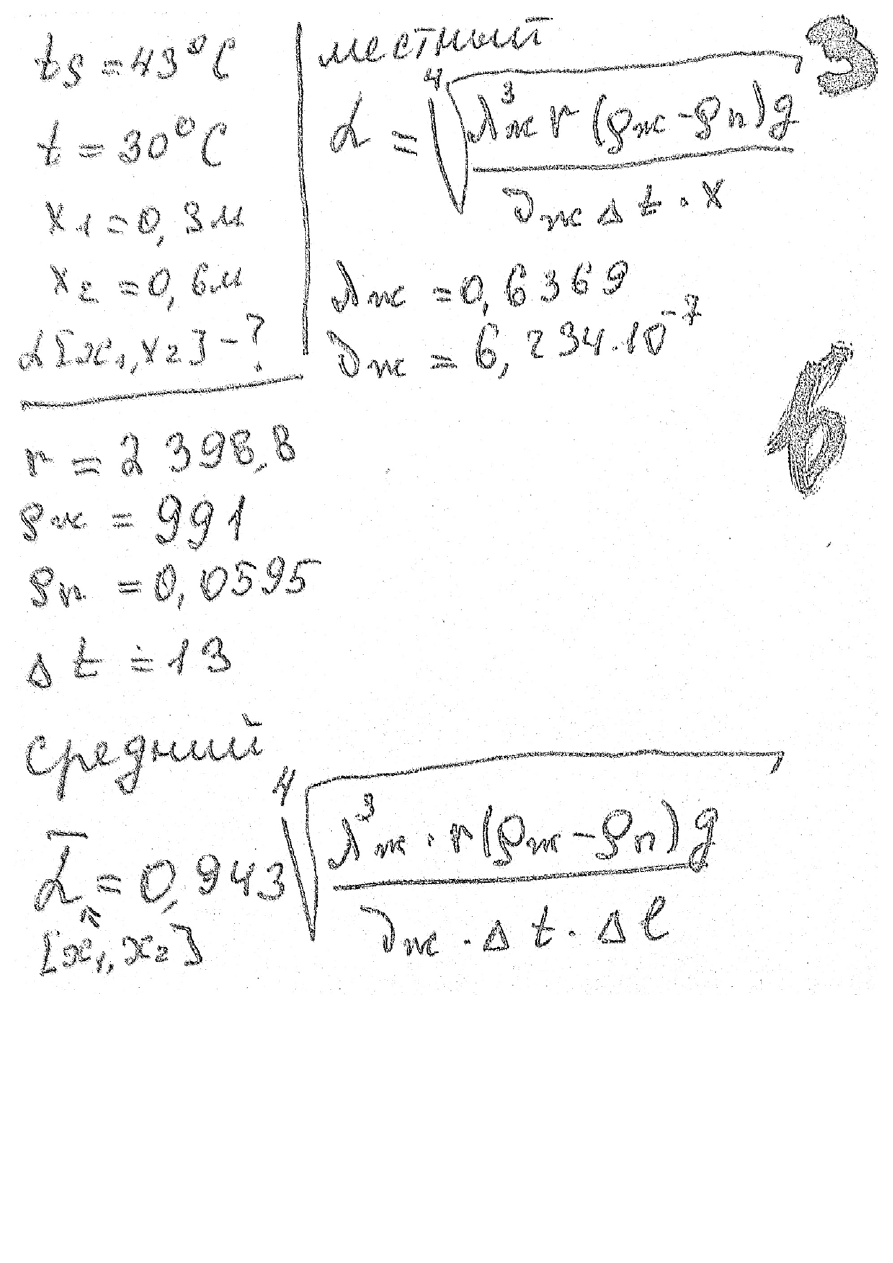 ts = 43°C
t = 30°C
x₁ = 0,3м
x₂ = 0,6м
α[x₁,x₂] - ?
местный
3
α = ⁴√(λж³ r (ρж - ρп) g / (∂ж Δt · x))
λж = 0,6369
∂ж = 6,234·10⁻⁷
6
r = 2398,8
ρж = 991
ρп = 0,0595
Δt = 13
средний
α̅ = 0,943 ⁴√(λ³ж · r(ρж - ρп) g / (∂ж · Δt · Δl))
[x₁, x₂]